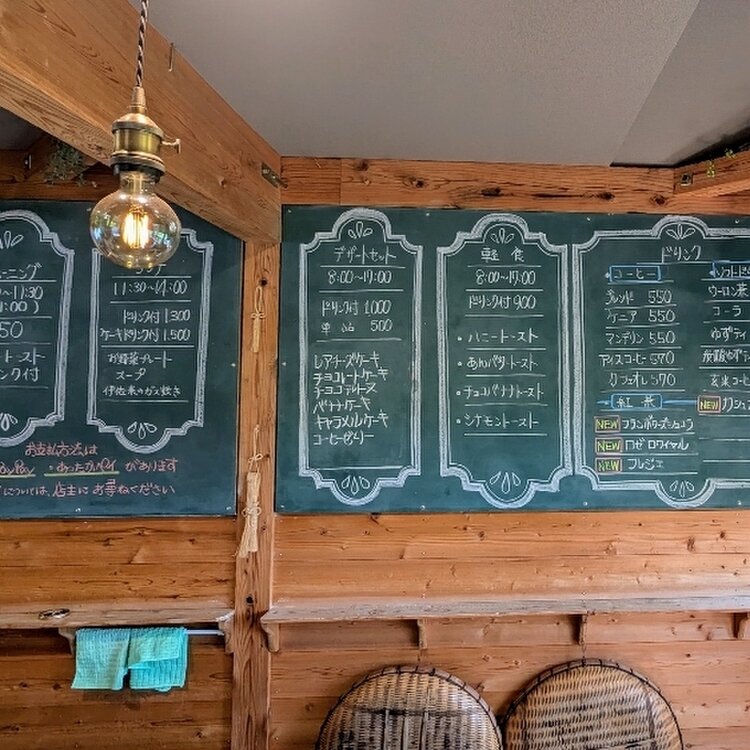 ーニング
〜11:30
:00)
50
トースト
ンク付
ランチ
11:30〜14:00
ドリンク付 1.300
ケーキドリンク付 1.500
お野菜プレート
スープ
伊佐米のガス炊き
お支払方法は
PayPay ・あったかペイ があります
については、店主にお尋ねください
デザートセット
8:00〜17:00
ドリンク付 1000
単品 500
レアチーズケーキ
チョコレートケーキ
チョコテリーヌ
バナナケーキ
キャラメルケーキ
コーヒーゼリー
軽食
8:00〜17:00
ドリンク付 900
・ハニートースト
・あんバタートースト
・チョコバナナトースト
・シナモントースト
ドリンク
コーヒー
ブレンド 550
ケニア 550
マンデリン 550
アイスコーヒー 570
カフェオレ 570
紅茶
NEW フランボワーズショコラ
NEW ロゼロワイヤル
NEW フレジェ
ソフトドリ
ウーロン茶
コーラ
ゆずティ
炭酸ゆず
玄米コーヒ
NEW カシス